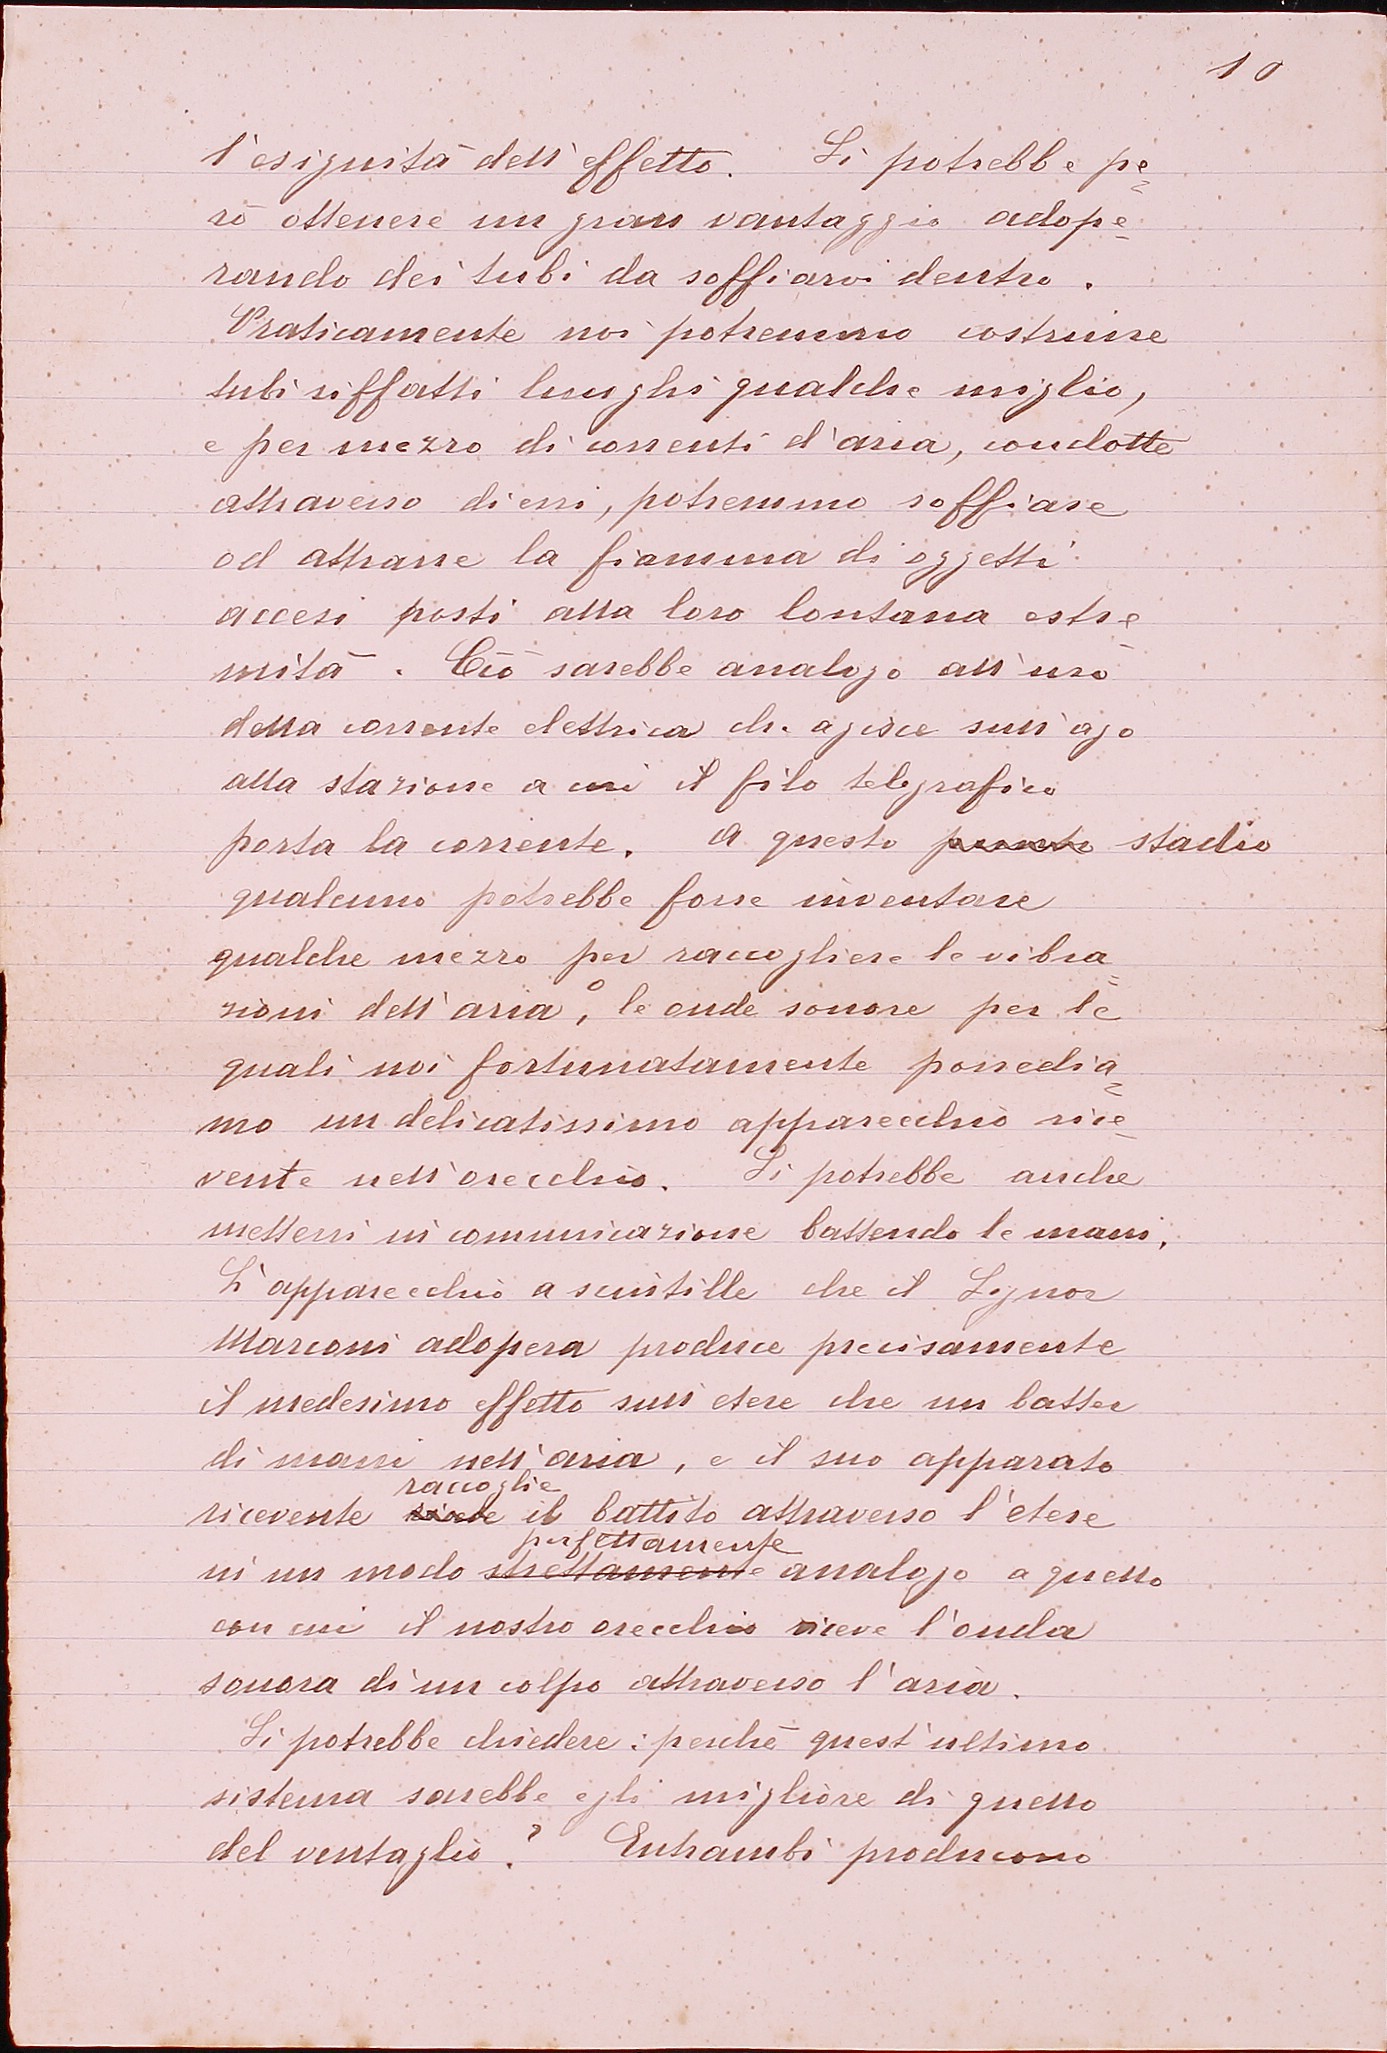 10
l'esiguità dell'effetto. Si potrebbe pe=
rò ottenere un gran vantaggio adope=
rando dei tubi da soffiarvi dentro.
Praticamente noi potremmo costruire
tubi siffatti lunghi qualche miglio,
e per mezzo di correnti d'aria, condotte
attraverso di essi, potremmo soffiare
od attrarre la fiamma di oggetti
accesi posti alla loro lontana estre
mità. Ciò sarebbe analogo all'uso
della corrente elettrica che agisce sull'ago
alla stazione a cui il filo telegrafico
porta la corrente. A questo punto stadio
qualcuno potrebbe forse inventare
qualche mezzo per raccogliere le vibra=
zioni dell'aria, o le onde sonore per le
quali noi fortunatamente possedia=
mo un delicatissimo apparecchio rice=
vente nell'orecchio. Si potrebbe anche
mettersi in comunicazione battendo le mani.
L'apparecchio a scintille che il Signor
Marconi adopera produce precisamente
il medesimo effetto sull'etere che un batter
di mani nell'aria, e il suo apparato
raccoglie
ricevente il battito attraverso l'etere
perfettamente
in un modo strettamente analogo a quello
con cui il nostro orecchio riceve l'onda
sonora di un colpo attraverso l'aria.
Si potrebbe chiedere: perchè quest'ultimo
sistema sarebbe egli migliore di quello
del ventaglio? Entrambi producono